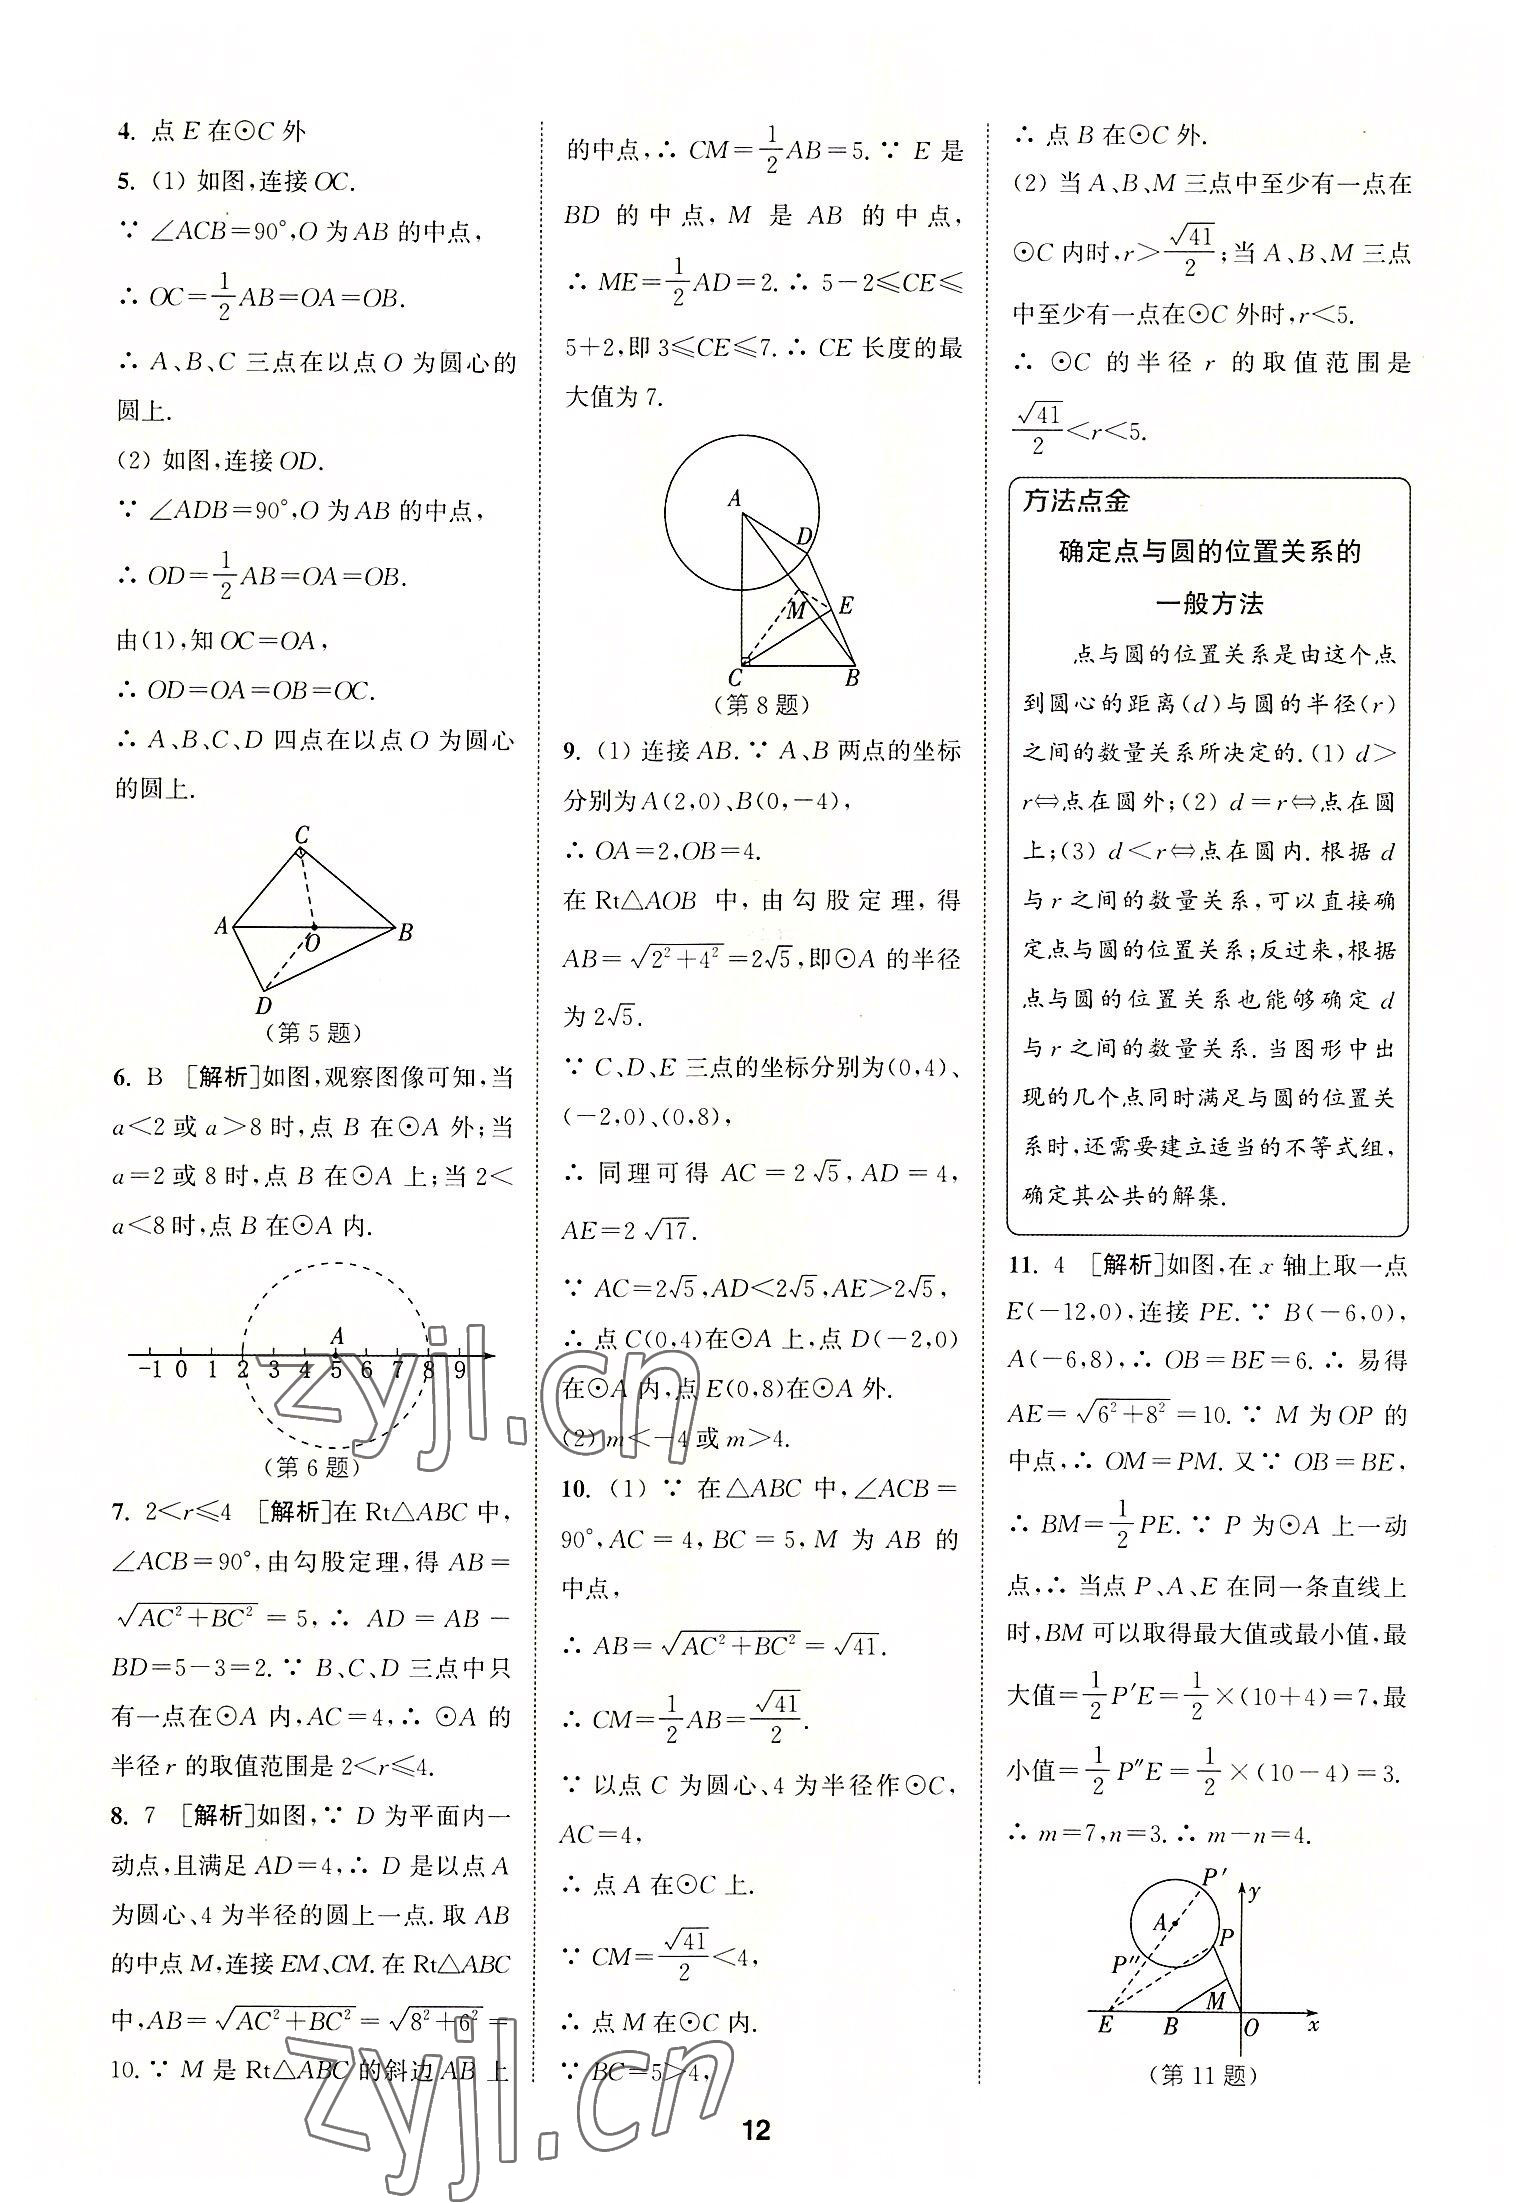 4. 点 E 在⊙C 外
5. (1) 如图,连接OC.
∵ ∠ACB=90°,O 为AB 的中点,
∴ OC=1/2AB=OA=OB.
∴ A、B、C 三点在以点O 为圆心的
圆上.
(2) 如图,连接OD.
∵ ∠ADB=90°,O 为AB 的中点,
∴ OD=1/2AB=OA=OB.
由(1),知OC=OA,
∴ OD=OA=OB=OC.
∴ A、B、C、D 四点在以点O 为圆心
的圆上.
C
A
O
B
D
(第5题)
6. B [解析]如图,观察图像可知,当
a<2或a>8时,点 B 在⊙A 外;当
a=2或8时,点 B 在⊙A 上;当2<
a<8时,点 B 在⊙A 内.
A
-1 0 1 2 3 4 5 6 7 8 9
(第6题)
7. 2<r≤4 [解析]在 Rt△ABC 中,
∠ACB=90°,由勾股定理,得 AB=
√(AC²+BC²)=5,∴ AD=AB-
BD=5-3=2.∵ B、C、D 三点中只
有一点在⊙A 内,AC=4,∴ ⊙A 的
半径r 的取值范围是2<r≤4.
8. 7 [解析]如图,∵ D 为平面内一
动点,且满足 AD=4,∴ D 是以点A
为圆心、4为半径的圆上一点.取 AB
的中点M,连接EM、CM.在 Rt△ABC
中,AB=√(AC²+BC²)=√(8²+6²)=
10.∵ M 是 Rt△ABC 的斜边AB 上
的中点,∴ CM=1/2AB=5.∵ E 是
BD 的中点,M 是 AB 的中点,
∴ ME=1/2AD=2.∴ 5-2≤CE≤
5+2,即3≤CE≤7.∴ CE 长度的最
大值为7.
A
D
M
E
C
B
(第8题)
9. (1) 连接AB.∵ A、B 两点的坐标
分别为A(2,0)、B(0,-4),
∴ OA=2,OB=4.
在 Rt△AOB 中,由勾股定理,得
AB=√(2²+4²)=2√5,即⊙A 的半径
为2√5.
∵ C、D、E 三点的坐标分别为(0,4)、
(-2,0)、(0,8),
∴ 同理可得 AC=2√5,AD=4,
AE=2√17.
∵ AC=2√5,AD<2√5,AE>2√5,
∴ 点C(0,4)在⊙A 上,点 D(-2,0)
在⊙A 内,点E(0,8)在⊙A 外.
(2) m<-4或m>4.
10. (1) ∵ 在△ABC 中,∠ACB=
90°,AC=4,BC=5,M 为 AB 的
中点,
∴ AB=√(AC²+BC²)=√41.
∴ CM=1/2AB=√41/2.
∵ 以点 C 为圆心、4为半径作⊙C,
AC=4,
∴ 点 A 在⊙C 上.
∵ CM=√41/2<4,
∴ 点 M 在⊙C 内.
∵ BC=5>4,
∴ 点 B 在⊙C 外.
(2) 当 A、B、M 三点中至少有一点在
⊙C 内时,r>√41/2;当 A、B、M 三点
中至少有一点在⊙C 外时,r<5.
∴ ⊙C 的半径 r 的取值范围是
√41/2<r<5.
方法点金
确定点与圆的位置关系的
一般方法
点与圆的位置关系是由这个点
到圆心的距离(d)与圆的半径(r)
之间的数量关系所决定的.(1) d>
r⇔点在圆外;(2) d=r⇔点在圆
上;(3) d<r⇔点在圆内.根据 d
与r 之间的数量关系,可以直接确
定点与圆的位置关系;反过来,根据
点与圆的位置关系也能够确定 d
与r 之间的数量关系.当图形中出
现的几个点同时满足与圆的位置关
系时,还需要建立适当的不等式组,
确定其公共的解集.
11. 4 [解析]如图,在x 轴上取一点
E(-12,0),连接 PE.∵ B(-6,0),
A(-6,8),∴ OB=BE=6.∴ 易得
AE=√(6²+8²)=10.∵ M 为OP 的
中点,∴ OM=PM.又∵ OB=BE,
∴ BM=1/2PE.∵ P 为⊙A 上一动
点,∴ 当点 P、A、E 在同一条直线上
时,BM 可以取得最大值或最小值,最
大值=1/2P′E=1/2×(10+4)=7,最
小值=1/2P″E=1/2×(10-4)=3.
∴ m=7,n=3.∴ m-n=4.
P′
y
A
P
P″
M
E
B
O
x
(第11题)
12
zyjl.cn
zyjl.cn